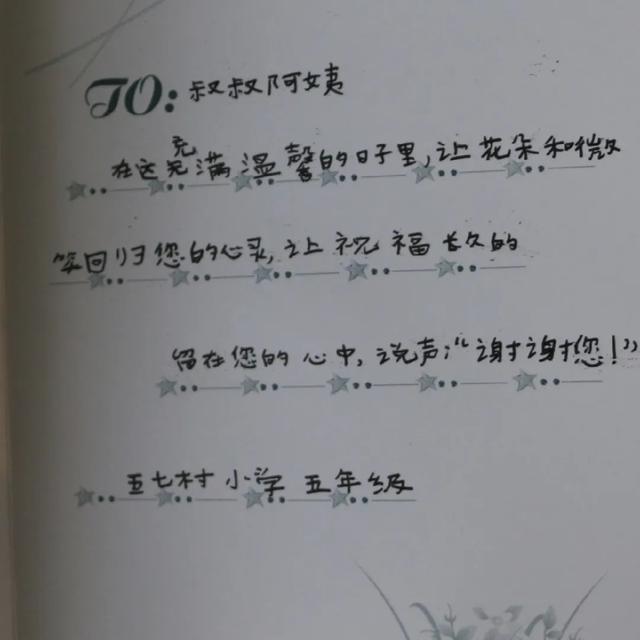 TO: 叔叔阿姨
在这充满温馨的日子里,让花朵和微
笑回归您的心灵,让祝福长久的
留在您的心中,说声:“谢谢您!”
五七村小学五年级